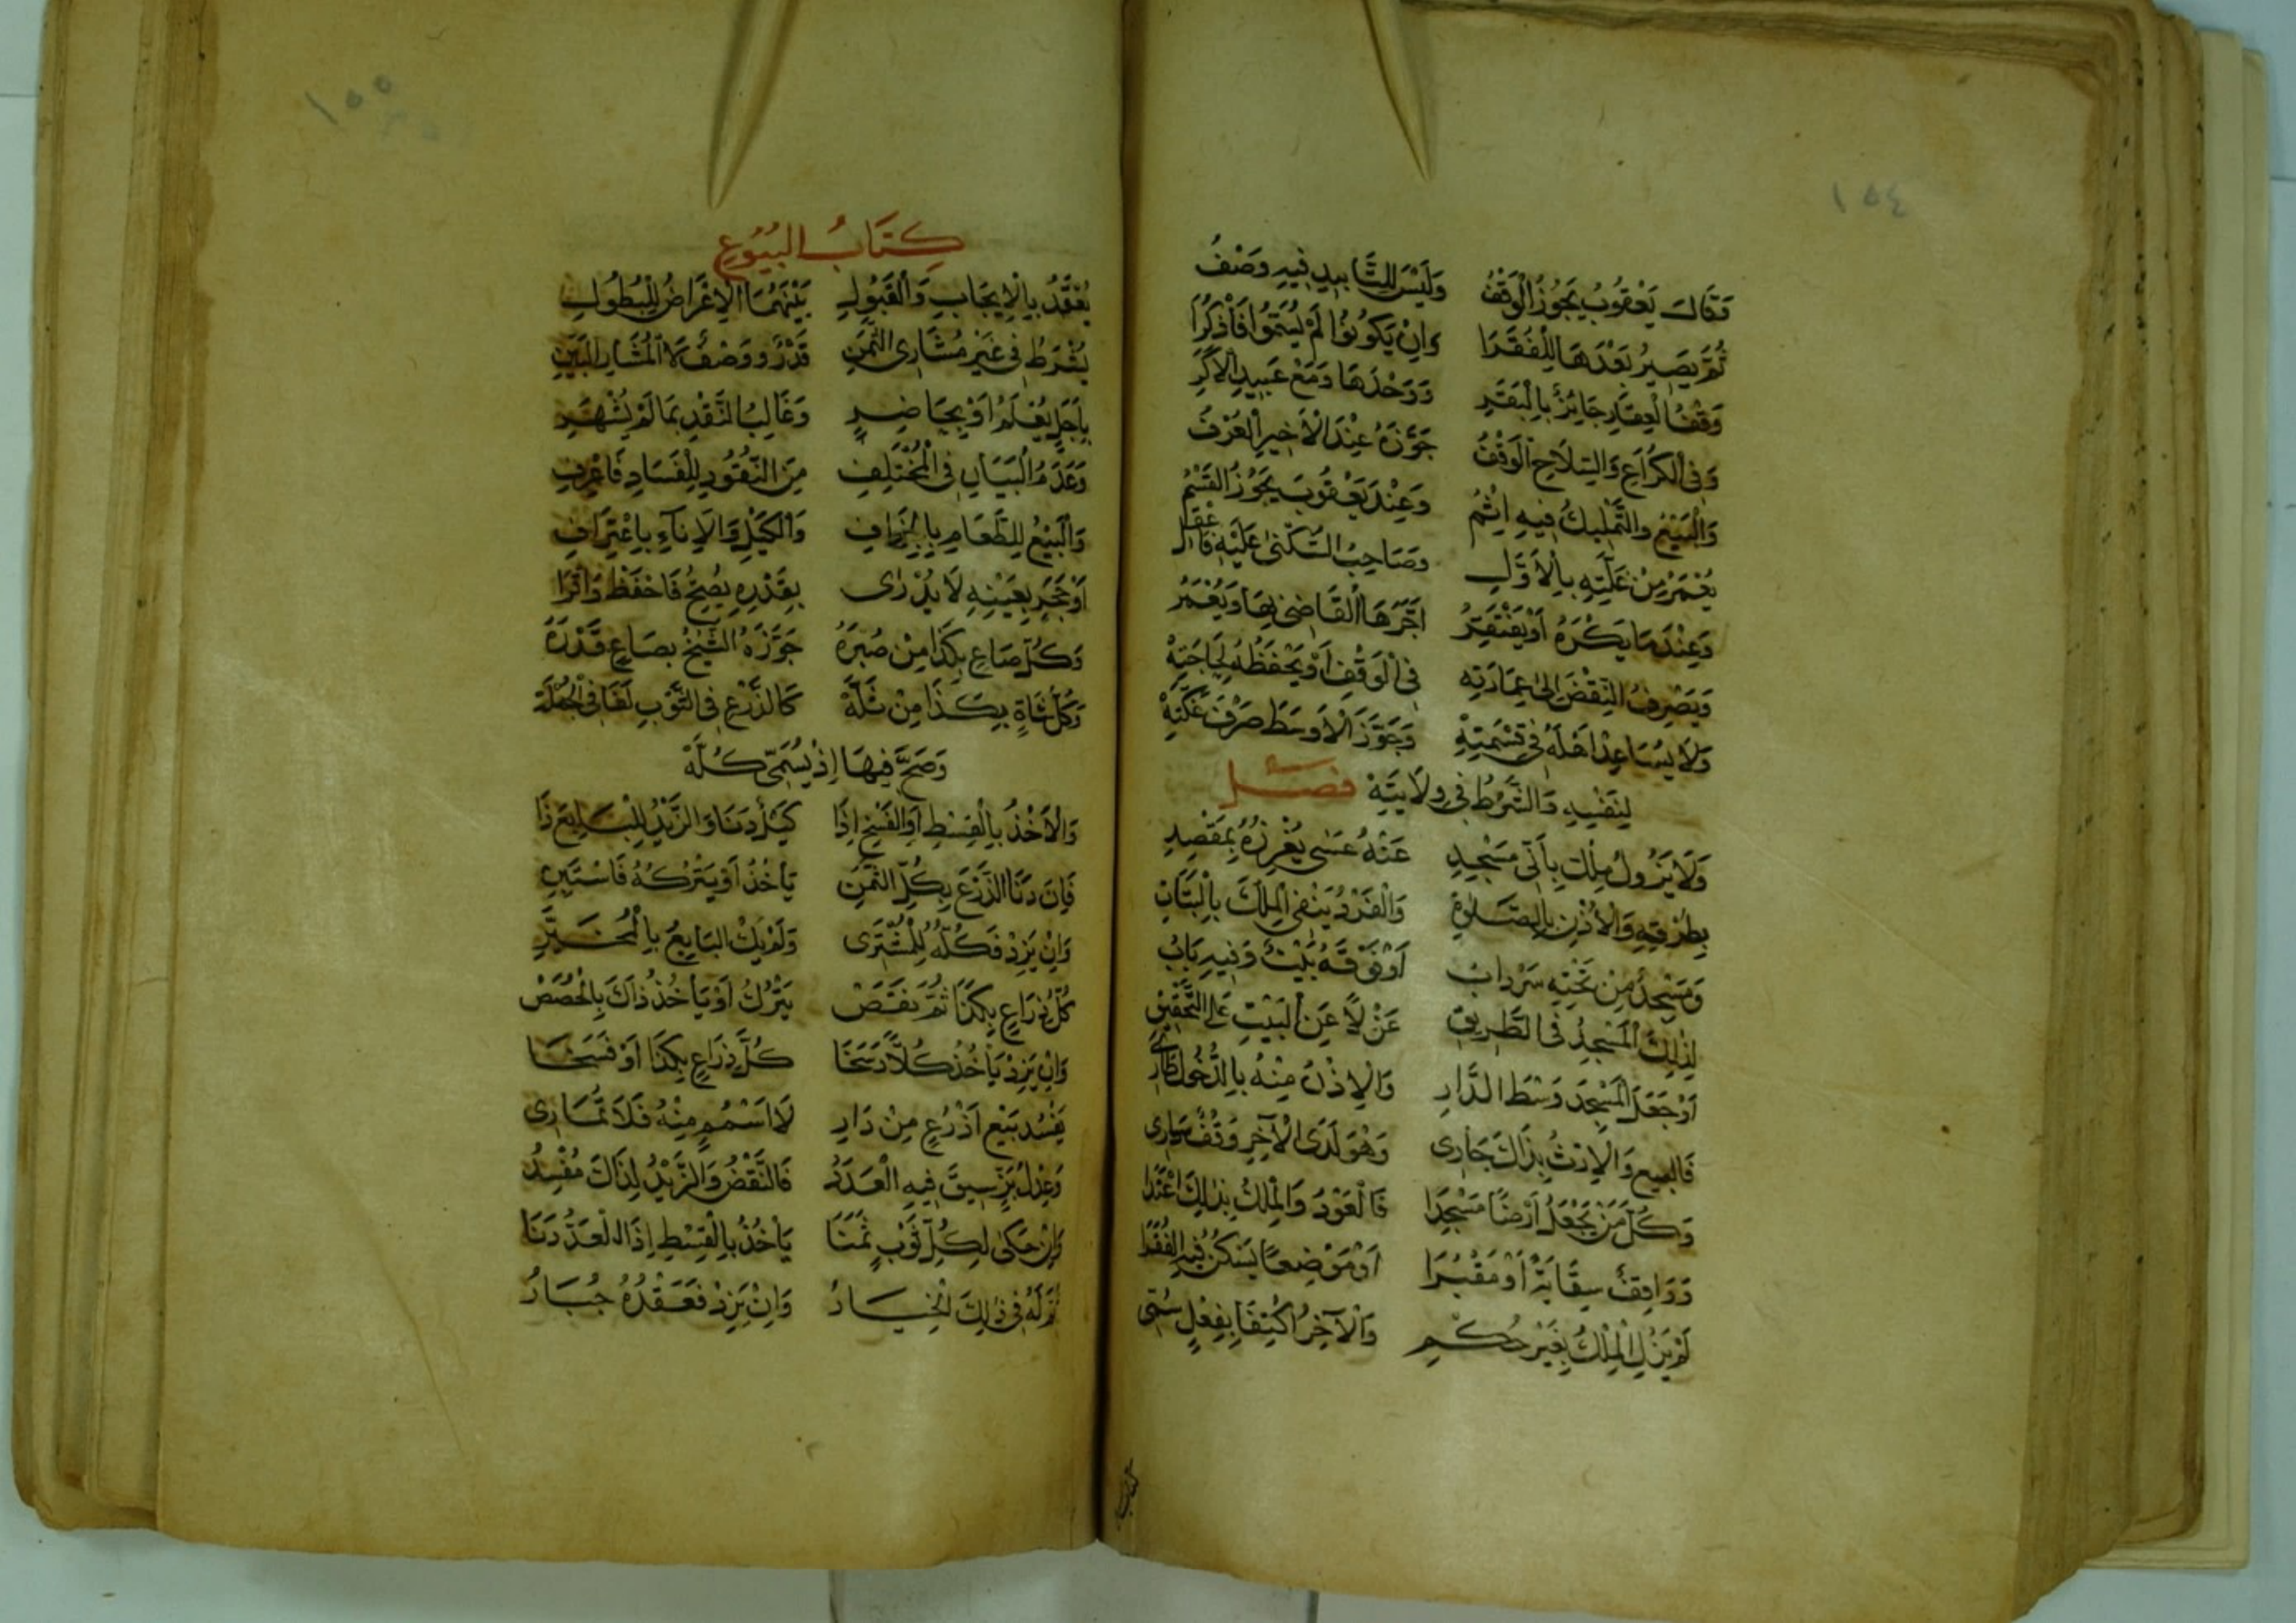 ١٥٤
وَقَالَ يَعْقُوبُ يَجُوزُ الْوَقْفُ وَلَيْسَ لِلتَّابِيدِ فِيهِ وَصْفُ
ثُمَّ يَصِيرُ بَعْدَهَا لِلْفُقَرَا وَاِنْ يَكُونُوا لَمْ يُسَمَّوْا فَاذْكُرَا
وَقْفُ الْعِقَارِ جَائِزٌ بِالْبَقَرِ وَوَحْدَهَا وَمَعْ عَبِيدِ الْاَكَرِ
وَفِى الْكُرَاعِ وَالسِّلَاحِ الْوَقْفُ جَوَّزَهُ عِنْدَ الْاَخِيرِ الْعُرْفُ
وَالْبَيْعُ وَالتَّمْلِيكُ فِيهِ اِثْمُ وَعِنْدَ يَعْقُوبَ يَجُوزُ الْقَسْمُ
يُعْمَرُ مِنْ غَلَّتِهِ بِالْاَوَّلِ وَصَاحِبُ السُّكْنٰى عَلَيْهِ
وَعِنْدَمَا يَكْرَهُ اَوْ يَفْتَقِرُ اَجَّرَهَا الْقَاضِى بِهَا وَيُعْمَرُ
وَيَصْرِفُ النِّقْضَ اِلٰى عِمَارَتِهِ فِى الْوَقْفِ اَوْ يَحْفَظُهُ لِحَاجَتِهْ
وَلَا يُسَاعِدْ اَهْلَهُ فِى قِسْمَتِهْ وَجَوَّزَ الْاَوْسَطُ صَرْفَ غَلَّتِهْ
لِنَفْسِهِ وَالشَّرْطُ فِى وِلَايَتِهْ فصل
وَلَا يَزُولُ مِلْكُ بَانِى مَسْجِدِ عَنْهُ عَسٰى يُفْرِزُهُ بِمَقْصِدِ
بِطُرْقِهِ وَالْاُذْنِ بِالصَّلٰوةِ وَالْفَرْدُ يَنْفِى الْمِلْكَ بِالْبَتَاتِ
وَمَسْجِدٌ مِنْ تَحْتِهِ سَرْدَابُ اَوْ فَوْقَهُ بَيْتٌ وَفِيهِ بَابُ
لِذٰلِكَ الْمَسْجِدُ فِى الطَّرِيقِ عَزْلًا عَنِ الْبَيْتِ عَلَى التَّحْقِيقِ
اَوْ جَعَلَ الْمَسْجِدَ وَسْطَ الدَّارِ وَالْاِذْنُ مِنْهُ بِالدُّخُولِ طَارِى
فَالبيع وَالْاِرْثُ بِذَاكَ جَارِى وَهْوَ لَدَى الْاٰخِرِ وَقْفٌ سَارِى
وَكُلُّ مَنْ يَجْعَلُ اَرْضًا مَسْجِدَا فَالْعَوْدُ وَالْمِلْكُ بِذٰلِكَ اعْتَدَا
وَوَاقِفٌ سِقَايَةً اَوْ مَقْبَرَا اَوْ مَوْضِعًا يَسْكُنُ فِيهِ الْفُقَرَا
لَمْ يَزُلِ الْمِلْكُ بِغَيْرِ حُكْمِ وَالْاٰخِرُ اكْتِفَا بِفِعْلٍ سُمِّى
كتاب
١٥٥
كِتَابُ الْبُيُوعِ
يُعْقَدُ بِالْاِيجَابِ وَالْقَبُولِ بَيْنَهُمَا الْاِعْرَاضُ لِلْبُطُولِ
يُشْرَطُ فِى غَيْرِ مُشَارِى الثَّمَنِ قَدْرٌ وَوَصْفٌ لَا الْمُشَارِ الْبَيِّنِ
بِاَجَلٍ يُعْلَمُ اَوْ بِحَاضِرٍ وَغَالِبُ النَّقْدِ بِمَا لَمْ يُشْهَرِ
وَعَدَمُ الْبَيَانِ فِى الْمُخْتَلِفِ مِنَ النُّقُودِ لِلْفَسَادِ فَاعْرِفِ
وَالْبَيْعُ لِلطَّعَامِ بِالْجِزَافِ وَالْكَيْلِ وَالْاِنَاءِ بِاعْتِرَافِ
اَوْ حَجَرٍ بِعَيْنِهِ لَا يُدْرٰى بِقَدْرِهِ يُصِحُّ فَاحْفَظْ وَاقْرَا
وَكُلُّ صَاعٍ بِكَذَا مِنْ صُبْرَهْ جَوَّزَهُ الشَّيْخُ بِصَاعٍ قَدْرَهْ
وَكُلُّ شَاةٍ بِكَذَا مِنْ ثُلَّهْ كَالذَّرْعِ فِى الثَّوْبِ لَغَا فِى الْجُمْلَهْ
وَصَحَّ فِيهَا اِذْ يُسَمِّى كُلَّهْ
وَالْاَخْذُ بِالْقِسْطِ اَوِ الْفَسْخِ اِذَا كَيْلٌ دَنَا وَالزَّيْدُ لِلْبَايِعِ ذَا
فَاِنْ دَنَا الذَّرْعُ بِكُلِّ الثَّمَنِ يَاْخُذُ اَوْ يَتْرُكُهُ فَاسْتَبِنِ
وَاِنْ يَزِدْ فَكُلُّهُ لِلْمُشْتَرِى وَلَمْ يَكُ الْبَايِعُ بِالْمُخَيَّرِ
كُلُّ ذِرَاعٍ بِكَذَا ثُمَّ نَقَصْ يَتْرُكُ اَوْ يَاْخُذُ ذَاكَ بِالْحِصَصْ
وَاِنْ يَزِدْ يَاْخُذُ كُلًّا وَسَخَا كُلُّ ذِرَاعٍ بِكَذَا اَوْ فَسَخَا
يَفْسُد بَيْع اَذْرُعٍ مِنْ دَارِ لَا اَسْهُمٍ مِنْهُ فَلَا تُمَارِى
وَعِدْلُ بَزٍّ سِيقَ فِيهِ الْعَدَدُ فَالنَّقْصُ وَالزَّيْدُ لِذَاكَ مُفْسِدُ
وَاِنْ حَكٰى لِكُلِّ ثَوْبٍ ثَمَنَا يَاْخُذُ بِالْقِسْطِ اِذَا الْعَدُّ دَنَا
ثُمَّ لَهُ فِى ذٰلِكَ الْخِيَارُ وَاِنْ يَزِدْ فَعَقْدُهُ جُبَارُ